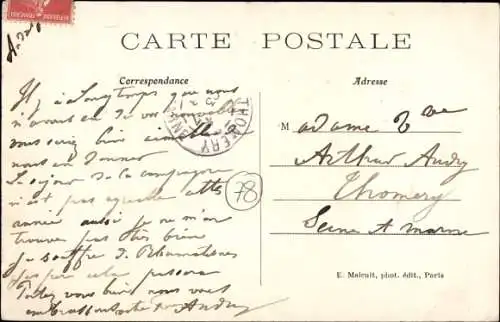 CARTE POSTALE
Correspondance
Adresse
Il y a Longtemps que nous
n'avons eu de vos nouvelles
vous seriez bien aimable de
nous en donner
Le séjour de la campagne
n'est pas agréable cette
année aussi je ne m'en
trouve pas très bien
je souffre de Rhumatismes
j'espère cela passera
Portez vous bien nous vous
embrassons Andry
THOMERY
78
Madame Vve
Arthur Andry
Thomery
Seine et Marne
E. Malcuit, phot. édit., Paris